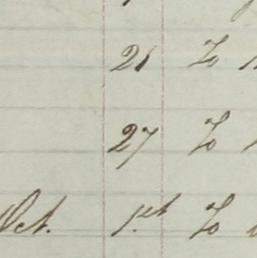 21 To
27 To
Oct. 1st To